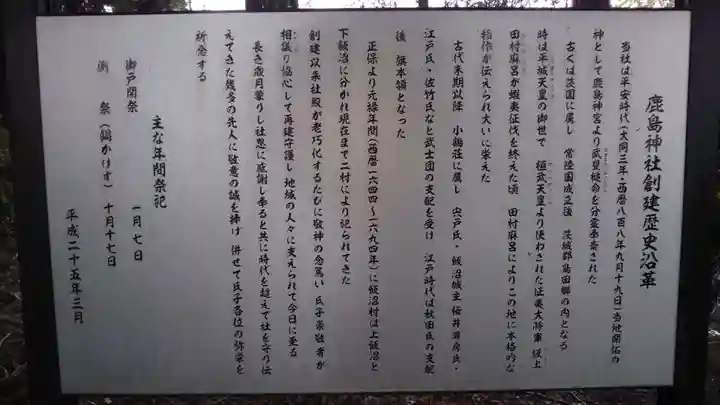 鹿島神社創建歴史沿革
当社は平安時代(大同三年・西暦八百八年九月十九日)当地開拓の
神として鹿島神宮より武甕槌命を分霊奉斎された
古くは茨国に属し 常陸国成立後 茨城郡島田郷の内となる
時は平城天皇の御世で 桓武天皇より使わされた征夷大将軍 坂上
田村麻呂が蝦夷征伐を終えた頃 田村麻呂によりこの地に本格的な
稲作が伝えられ大いに栄えた
古代末期以降 小鶴荘に属し 宍戸氏・飯沼城主 桜井尊房氏・
江戸氏・佐竹氏など武士団の支配を受け 江戸時代は秋田氏の支配
後 旗本領となった
正保より元禄年間(西暦一六四四~一六九四年)に飯沼村は上飯沼と
下飯沼に分かれ現在まで二村により祀られてきた
創建以来社殿が老巧化するたびに敬神の念篤い 氏子崇敬者が
相議り協心して再建守護し 地域の人々に支えられて今日に至る
長き歳月蒙りし社恩に感謝し奉ると共に時代を超えて社を守り伝
えてきた幾多の先人に敬意の誠を捧げ 併せて氏子各位の弥栄を
祈念する
主な年間祭祀
御戸開祭 一月 七日
例 祭(鍋かけす) 十月十七日
平成二十五年三月